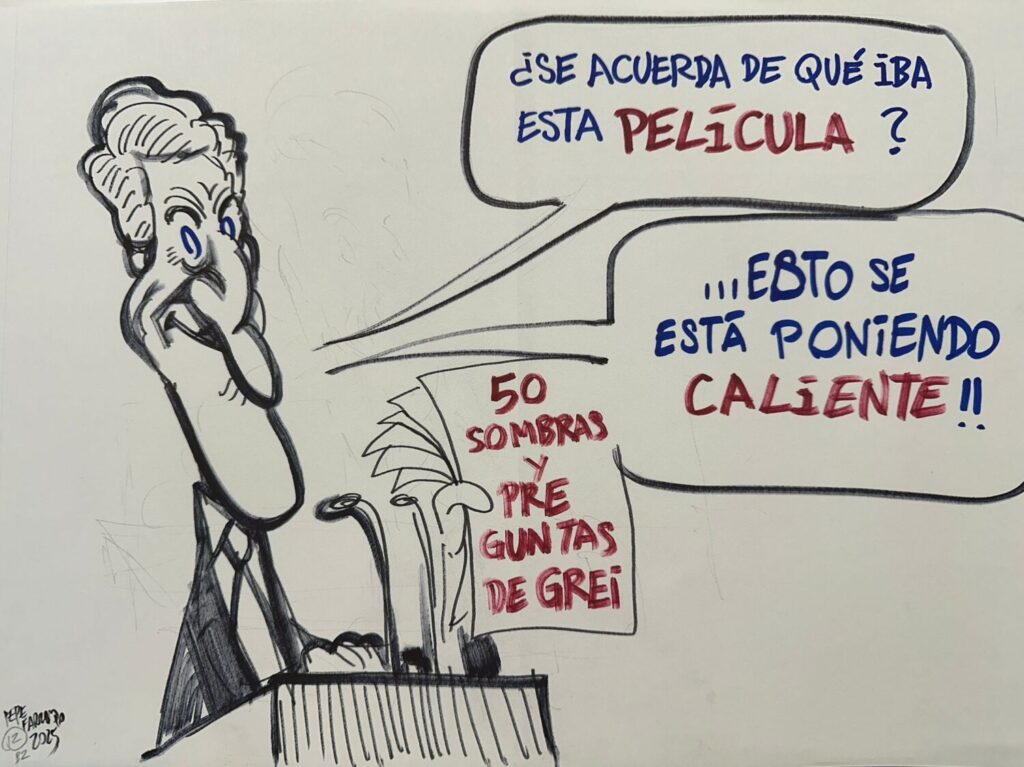 ¿SE ACUERDA DE QUÉ iBA
ESTA PELÍCULA ?
...ESTO SE
ESTÁ PONiENDO
CALiENTE!!
50
SOMBRAS
Y
PRE
GUNTAS
DE GREi
PEPE
FARRUQO
12 2025